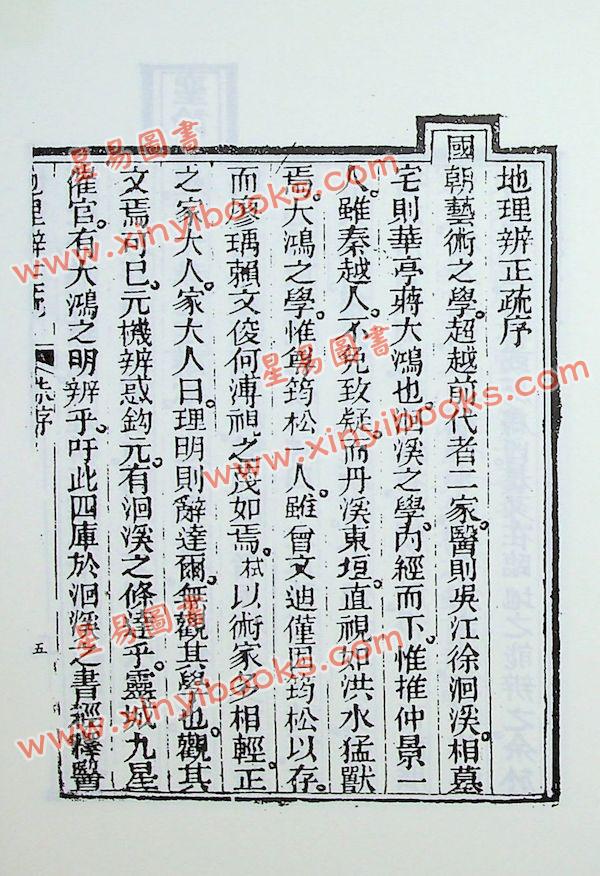 地理辨正疏序
國朝藝術之學。超越前代者二家。醫則吳江徐洄溪。相墓
宅則華亭蔣大鴻也。洄溪之學。內經而下。惟推仲景一
人。雖秦越人。不免致疑。而丹溪東垣。直視如洪水猛獸
焉。大鴻之學。惟尊筠松一人。雖曾文迪僅因筠松以存。
而廖瑀賴文俊何溥視之蔑如焉。栻以術家多相輕。正
之家大人。家大人曰。理明則辭達爾。無觀其學也。觀其
文焉可已。元機辨惑鉤元。有洄溪之條達乎。靈城九星
催官。有大鴻之明辨乎。吁此四庫於洄溪之書。經
地理辨正疏
序
五
星易圖書
www.xinyibooks.com
星易圖書
www.xinyibooks.com
星易圖書
www.xinyibooks.com